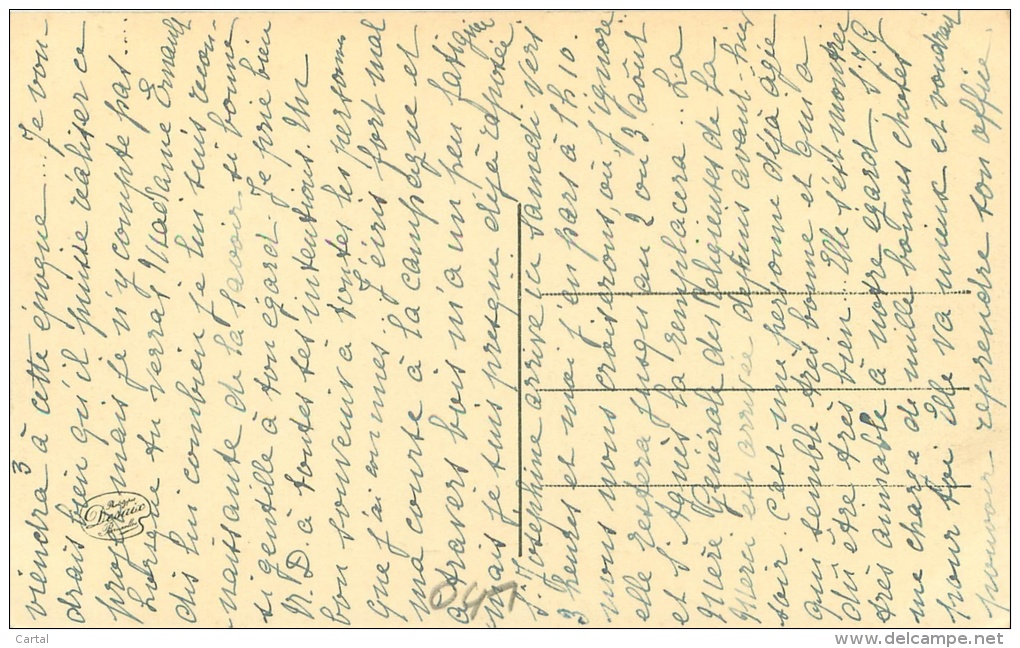 3
viendra à cette époque... Je vou-
drais bien qu'il puisse réaliser ce
projet, mais je n'y compte pas.
Lorsque tu verras Madame Ernault
dis lui combien je lui suis recon-
naissante de la savoir si bonne
si gentille à ton égard. Je prie bien
N. D. à toutes ses intentions. Un
bon souvenir à toutes les personnes
que j'ai aimées. J'écris fort mal
ma course à la campagne et
à travers bois m'a un peu fatiguée
mais je suis presque déjà reposée
S. Josephine arrive ce samedi vers
3 heures et moi j'en pars à 5h10.
nous nous croiserons où j'ignore
elle restera jusqu'au 2 ou 3 août
et S. Agnès la remplacera. La
Mère Générale des Religieuses de La
Merci est arrivée depuis avant-hier
soir. C'est une personne déjà âgée
qui semble très bonne et qui a
dû être très bien. Elle s'est montrée
très aimable à notre égard. S. J. G
me charge de mille bonnes choses
pour toi elle va mieux et voudrait
pouvoir reprendre son office.
Desaix
041
Cartal
www.delcampe.net